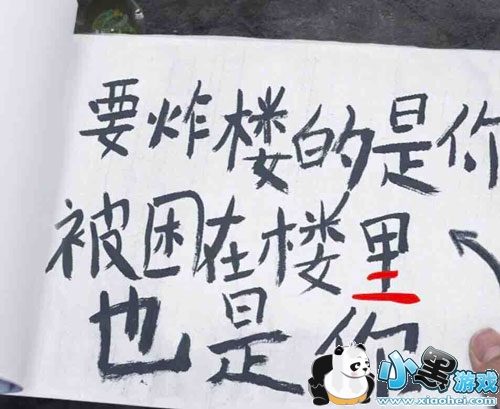 要炸楼的是你
被困在楼里
也是你
小黑游戏
www.xiaohei.com